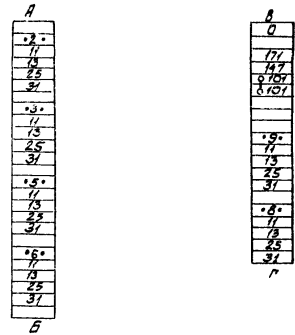 А
•2•
11
13
25
31
•3•
11
13
25
31
•5•
11
13
25
31
•6•
11
13
25
31
Б
В
0
171
147
101
101
•9•
11
13
25
31
•8•
11
13
25
31
Г